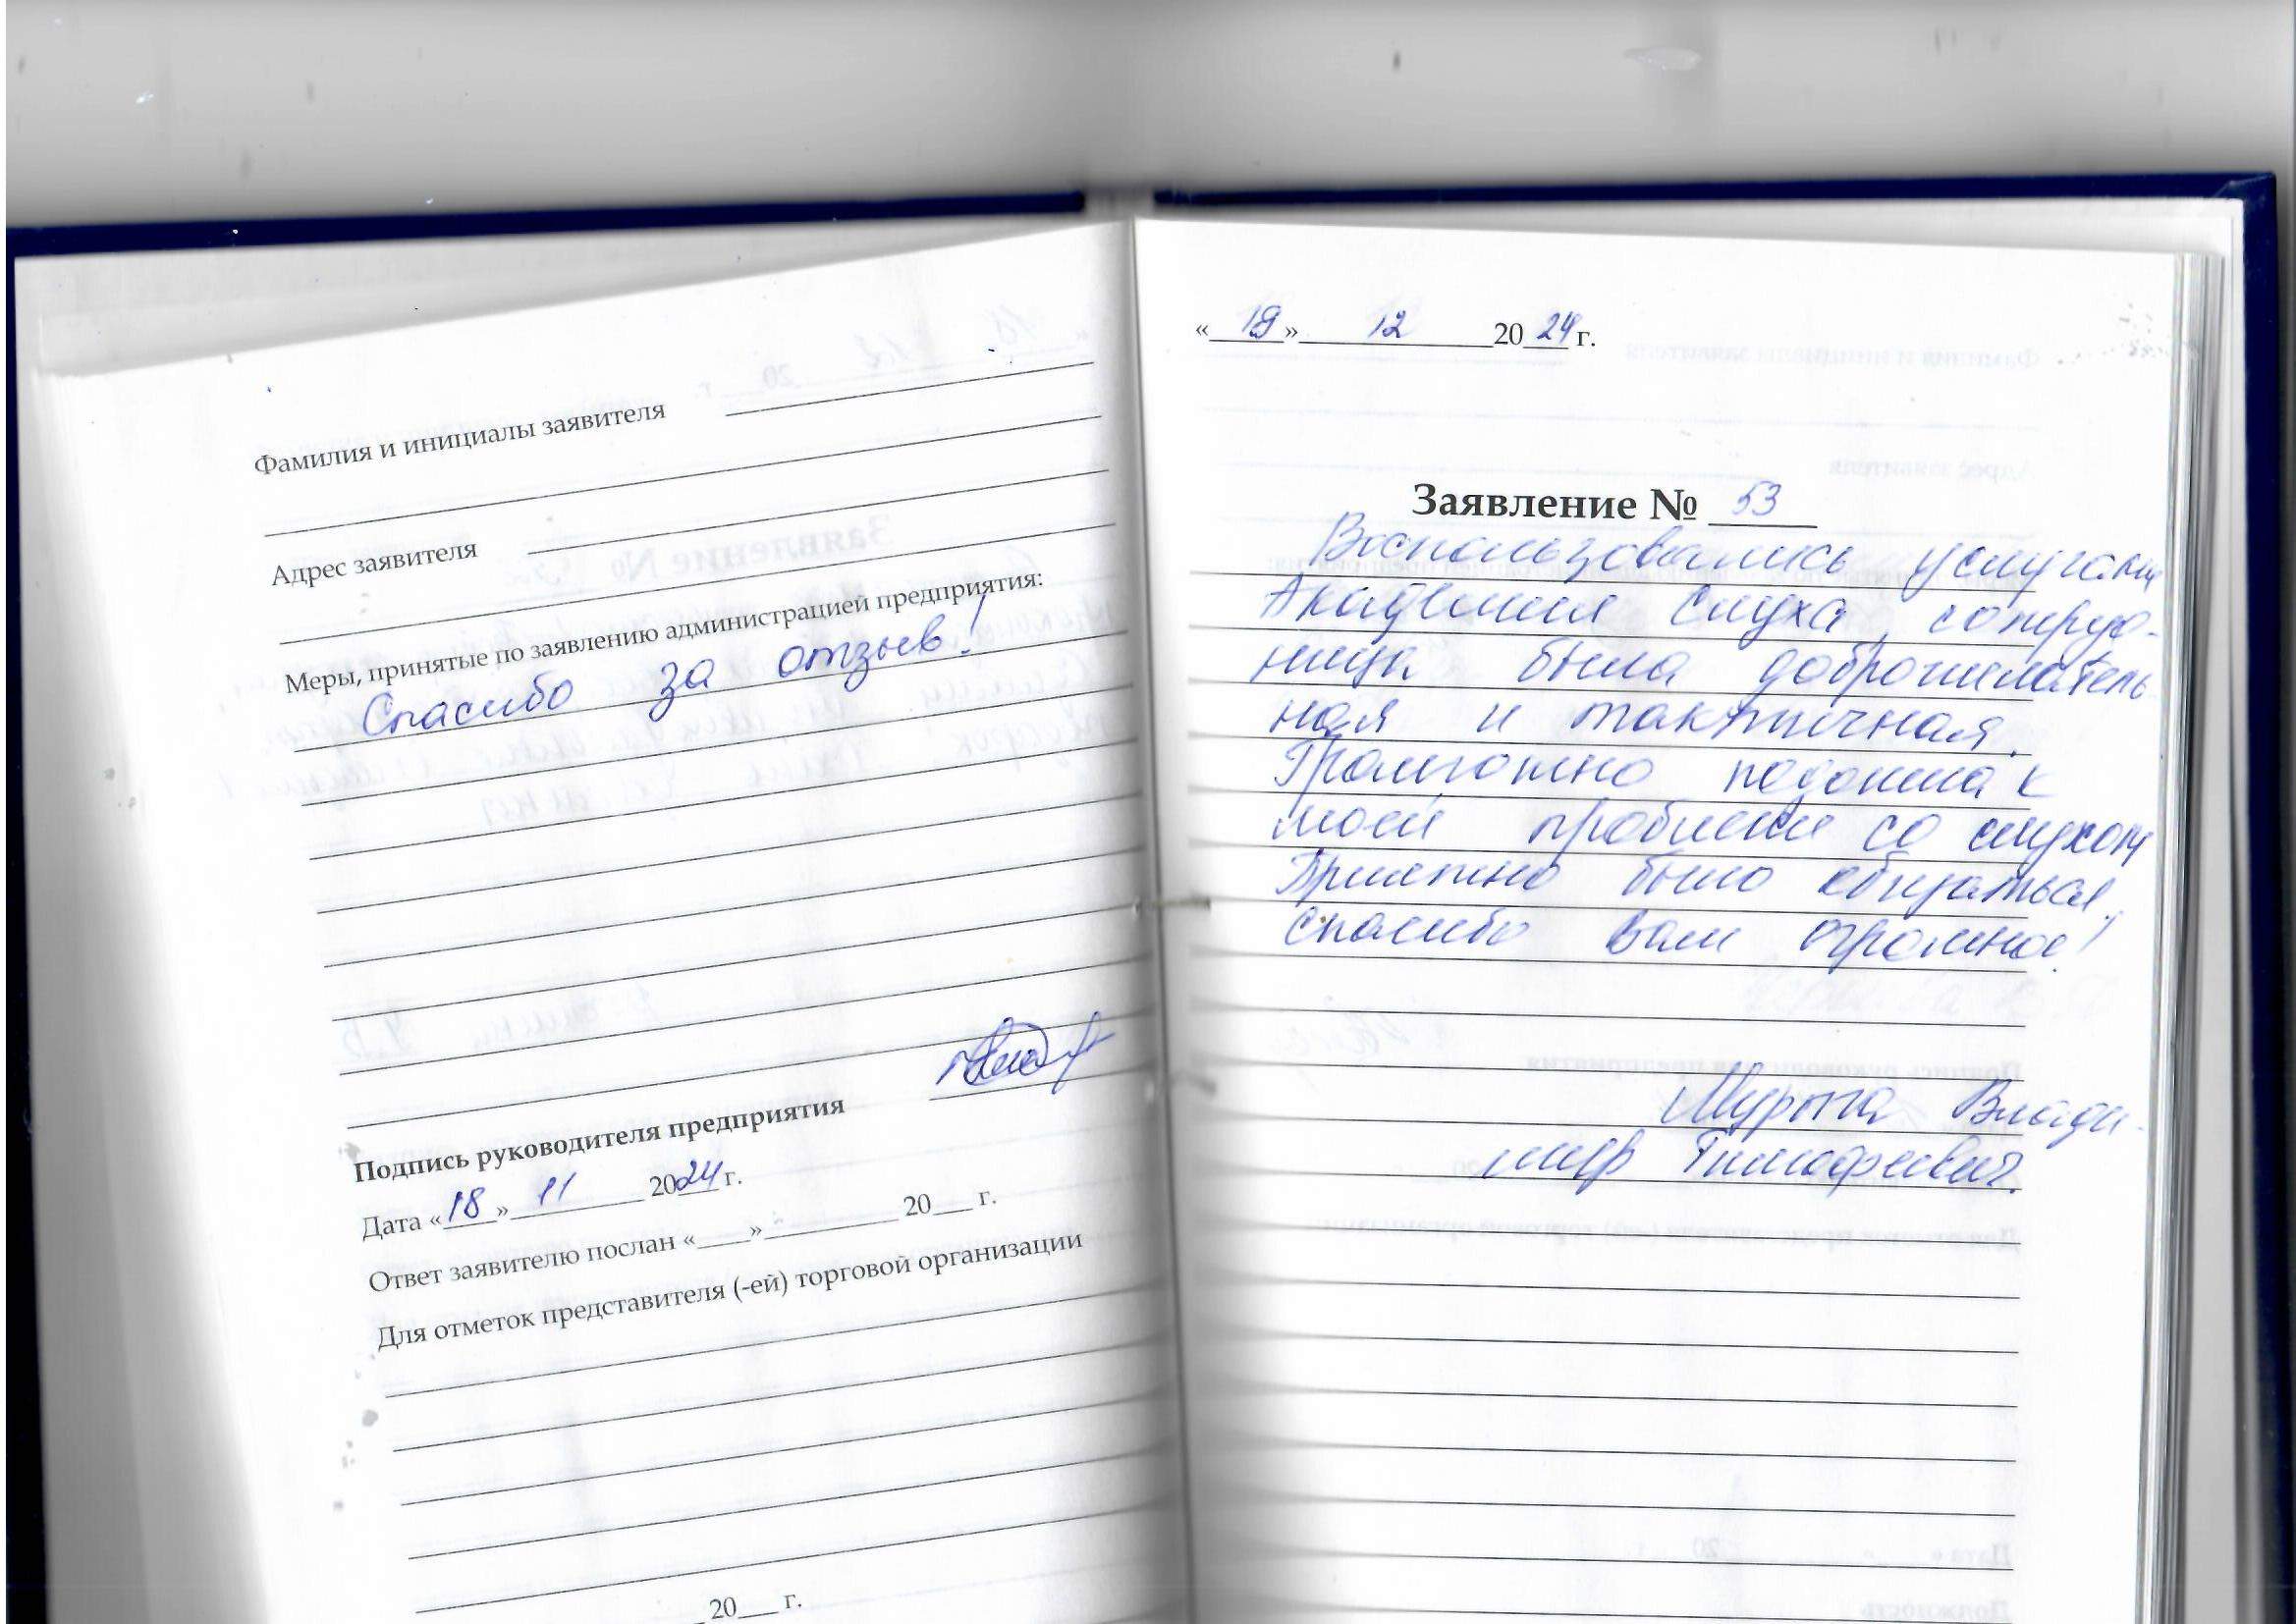 Фамилия и инициалы заявителя
Адрес заявителя
Меры, принятые по заявлению администрацией предприятия:
Спасибо за отзыв!
Подпись руководителя предприятия
Дата «18» 11 2024 г.
Ответ заявителю послан «____»__________ 20___ г.
Для отметок представителя (-ей) торговой организации
20___ г.
«19» 12 2024 г.
Заявление № 53
Воспользовались услугами
Академия слуха, сотруд-
ница была доброжелатель
ная и тактичная.
Грамотно подошла к
моей проблеме со слухом
Приятно было общаться,
спасибо вам огромное!
Мурта Влади-
мир Тимофеевич.